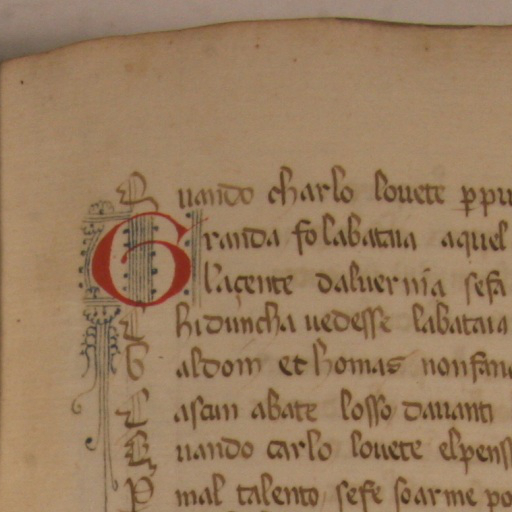 Q uando charlo louete ppiu
G randa fo labataia aquel
E laçente daluernia sefa
C hiduncha uedesse labataia
B aldoin et thomas nonfano
C ascun abate losso dauanti
Q uando carlo louete elpens
P mal talento sefe soarme po